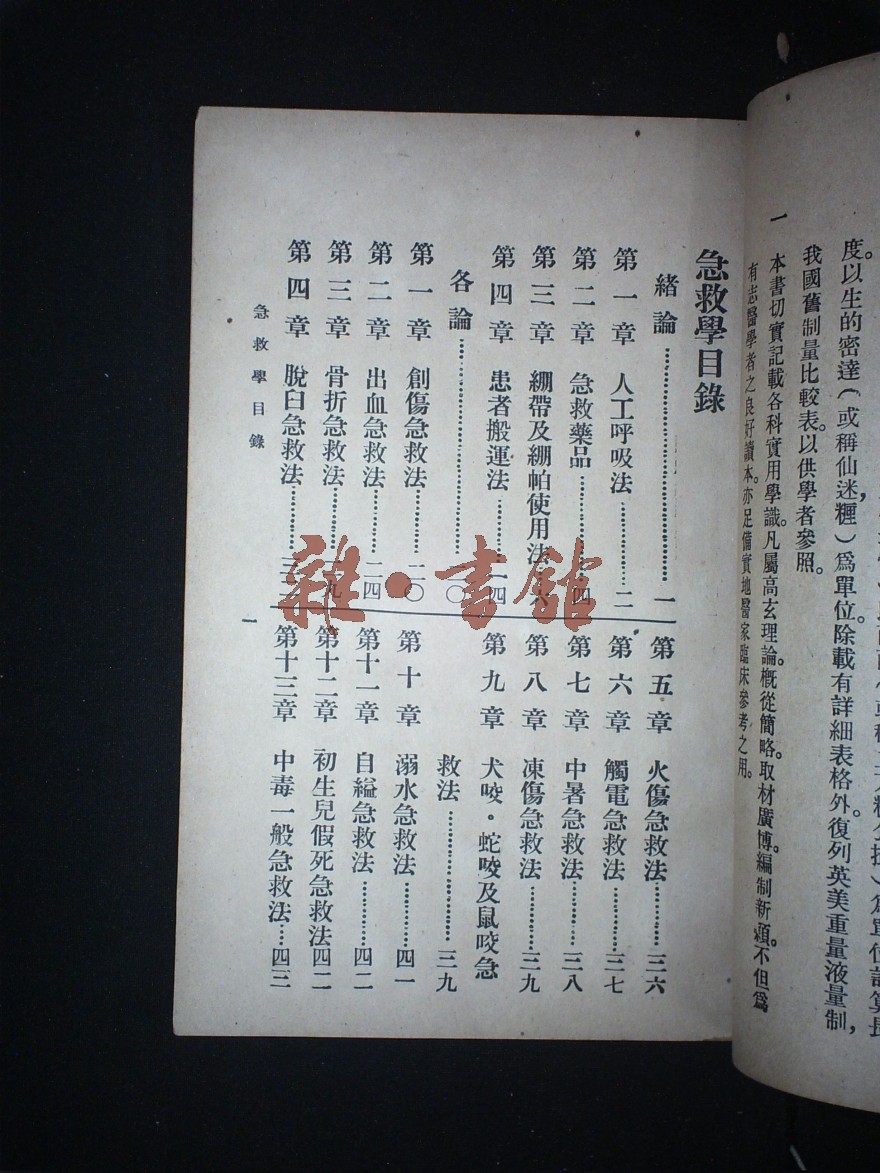 度。以生的密達（或稱仙迷糎）爲單位。除載有詳細表格外。復列英美重量液量制，
我國舊制量比較表。以供學者參照。
一 本書切實記載各科實用學識。凡屬高玄理論。概從簡略。取材廣博。編制新穎。不但爲
有志醫學者之良好讀本。亦足備實地醫家臨床參考之用。
急救學目錄
緒論…………一
第一章 人工呼吸法…………二
第二章 急救藥品…………四
第三章 綳帶及綳帕使用法…六
第四章 患者搬運法…………一四
各論…………二〇
第一章 創傷急救法…………二〇
第二章 出血急救法…………二四
第三章 骨折急救法…………二九
第四章 脫臼急救法…………三
第五章 火傷急救法…………三六
第六章 觸電急救法…………三七
第七章 中暑急救法…………三八
第八章 凍傷急救法…………三九
第九章 犬咬・蛇咬及鼠咬急
救法…………三九
第十章 溺水急救法…………四一
第十一章 自縊急救法…………四二
第十二章 初生兒假死急救法四二
第十三章 中毒一般急救法…四三
急救學目錄
一
雜・書館